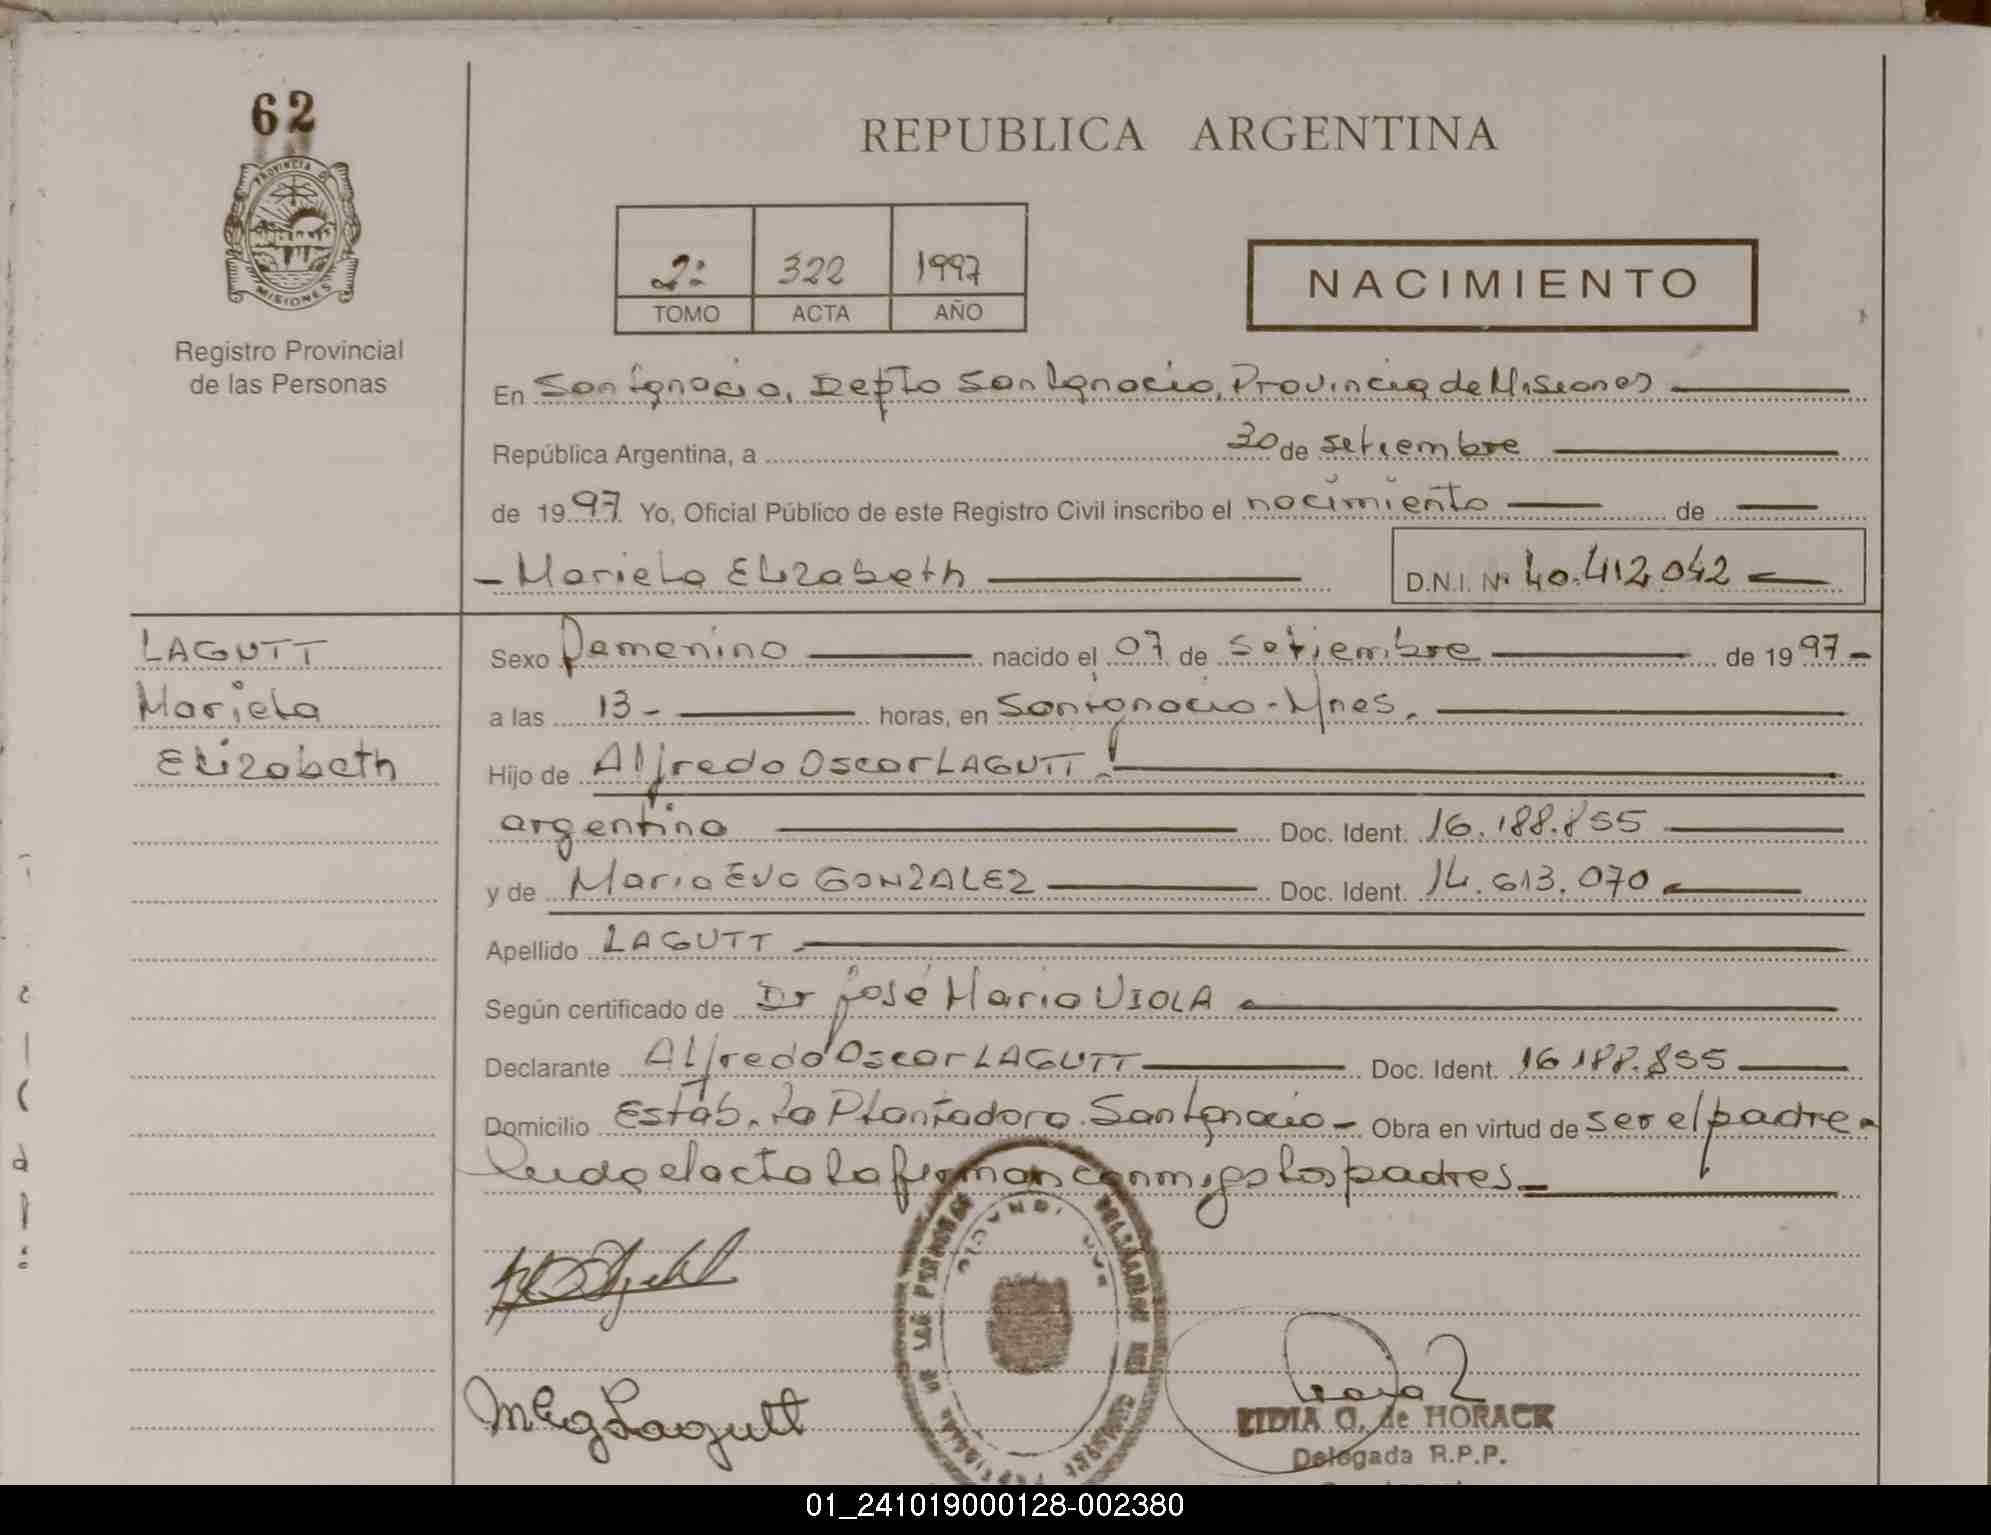 62
PROVINCIA DE
MISIONES
Registro Provincial
de las Personas
REPUBLICA ARGENTINA
2: 322 1997
TOMO ACTA AÑO
NACIMIENTO
En San Ignacio, Depto San Ignacio, Provincia de Misiones
República Argentina, a 30 de setiembre
de 1997 Yo, Oficial Público de este Registro Civil inscribo el nacimiento de
- Mariela Elizabeth
D.N.I. Nº 40.412.042
LAGUTT
Mariela
Elizabeth
Sexo Femenino nacido el 07 de Setiembre de 1997-
a las 13- horas, en San Ignacio-Mnes.
Hijo de Alfredo Oscar LAGUTT
argentino Doc. Ident. 16.188.855
y de Maria Eva GONZALEZ Doc. Ident. 14.613.070
Apellido LAGUTT
Según certificado de Dr José Mario VIOLA
Declarante Alfredo Oscar LAGUTT Doc. Ident. 16.188.855
Domicilio Estab. La Plantadora. San Ignacio- Obra en virtud de ser el padre-
Leida el acta la firman conmigo los padres
LIDIA G. de HORACK
Delegada R.P.P.
01_241019000128-002380